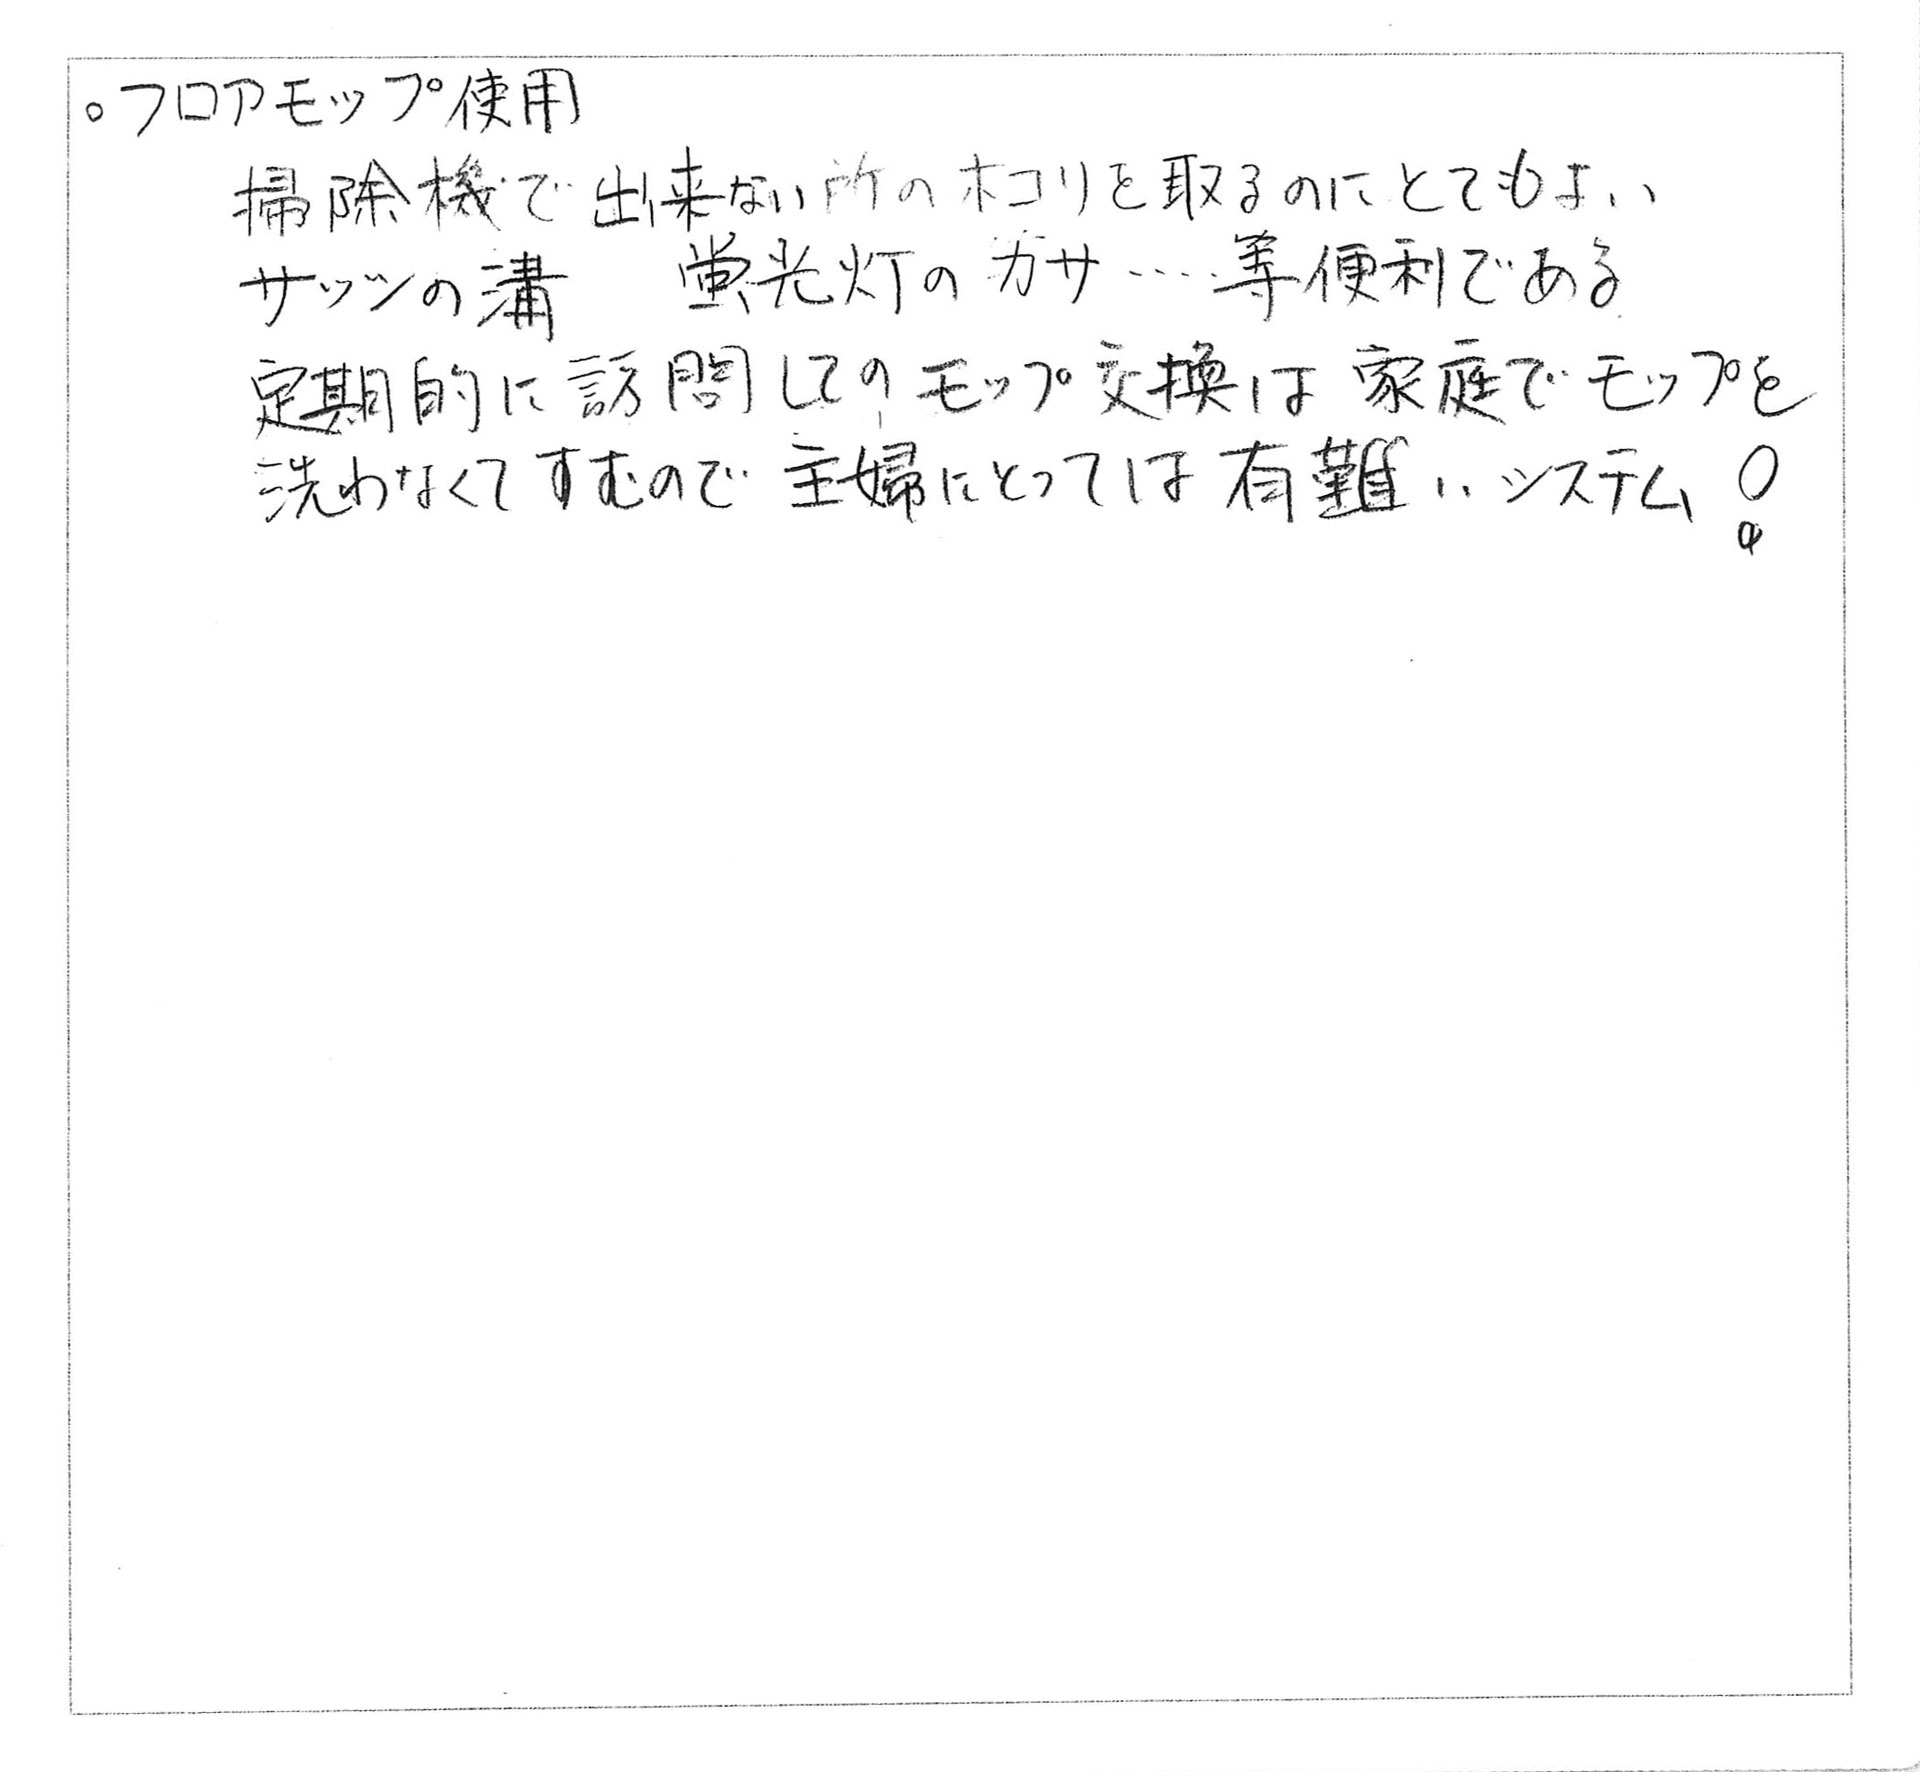 ○フロアモップ使用
掃除機で出来ない所のホコリを取るのにとてもよい
サッシの溝 蛍光灯のカサ……等便利である
定期的に訪問してのモップ交換は家庭でモップを
洗わなくてすむので主婦にとっては有難いシステム!